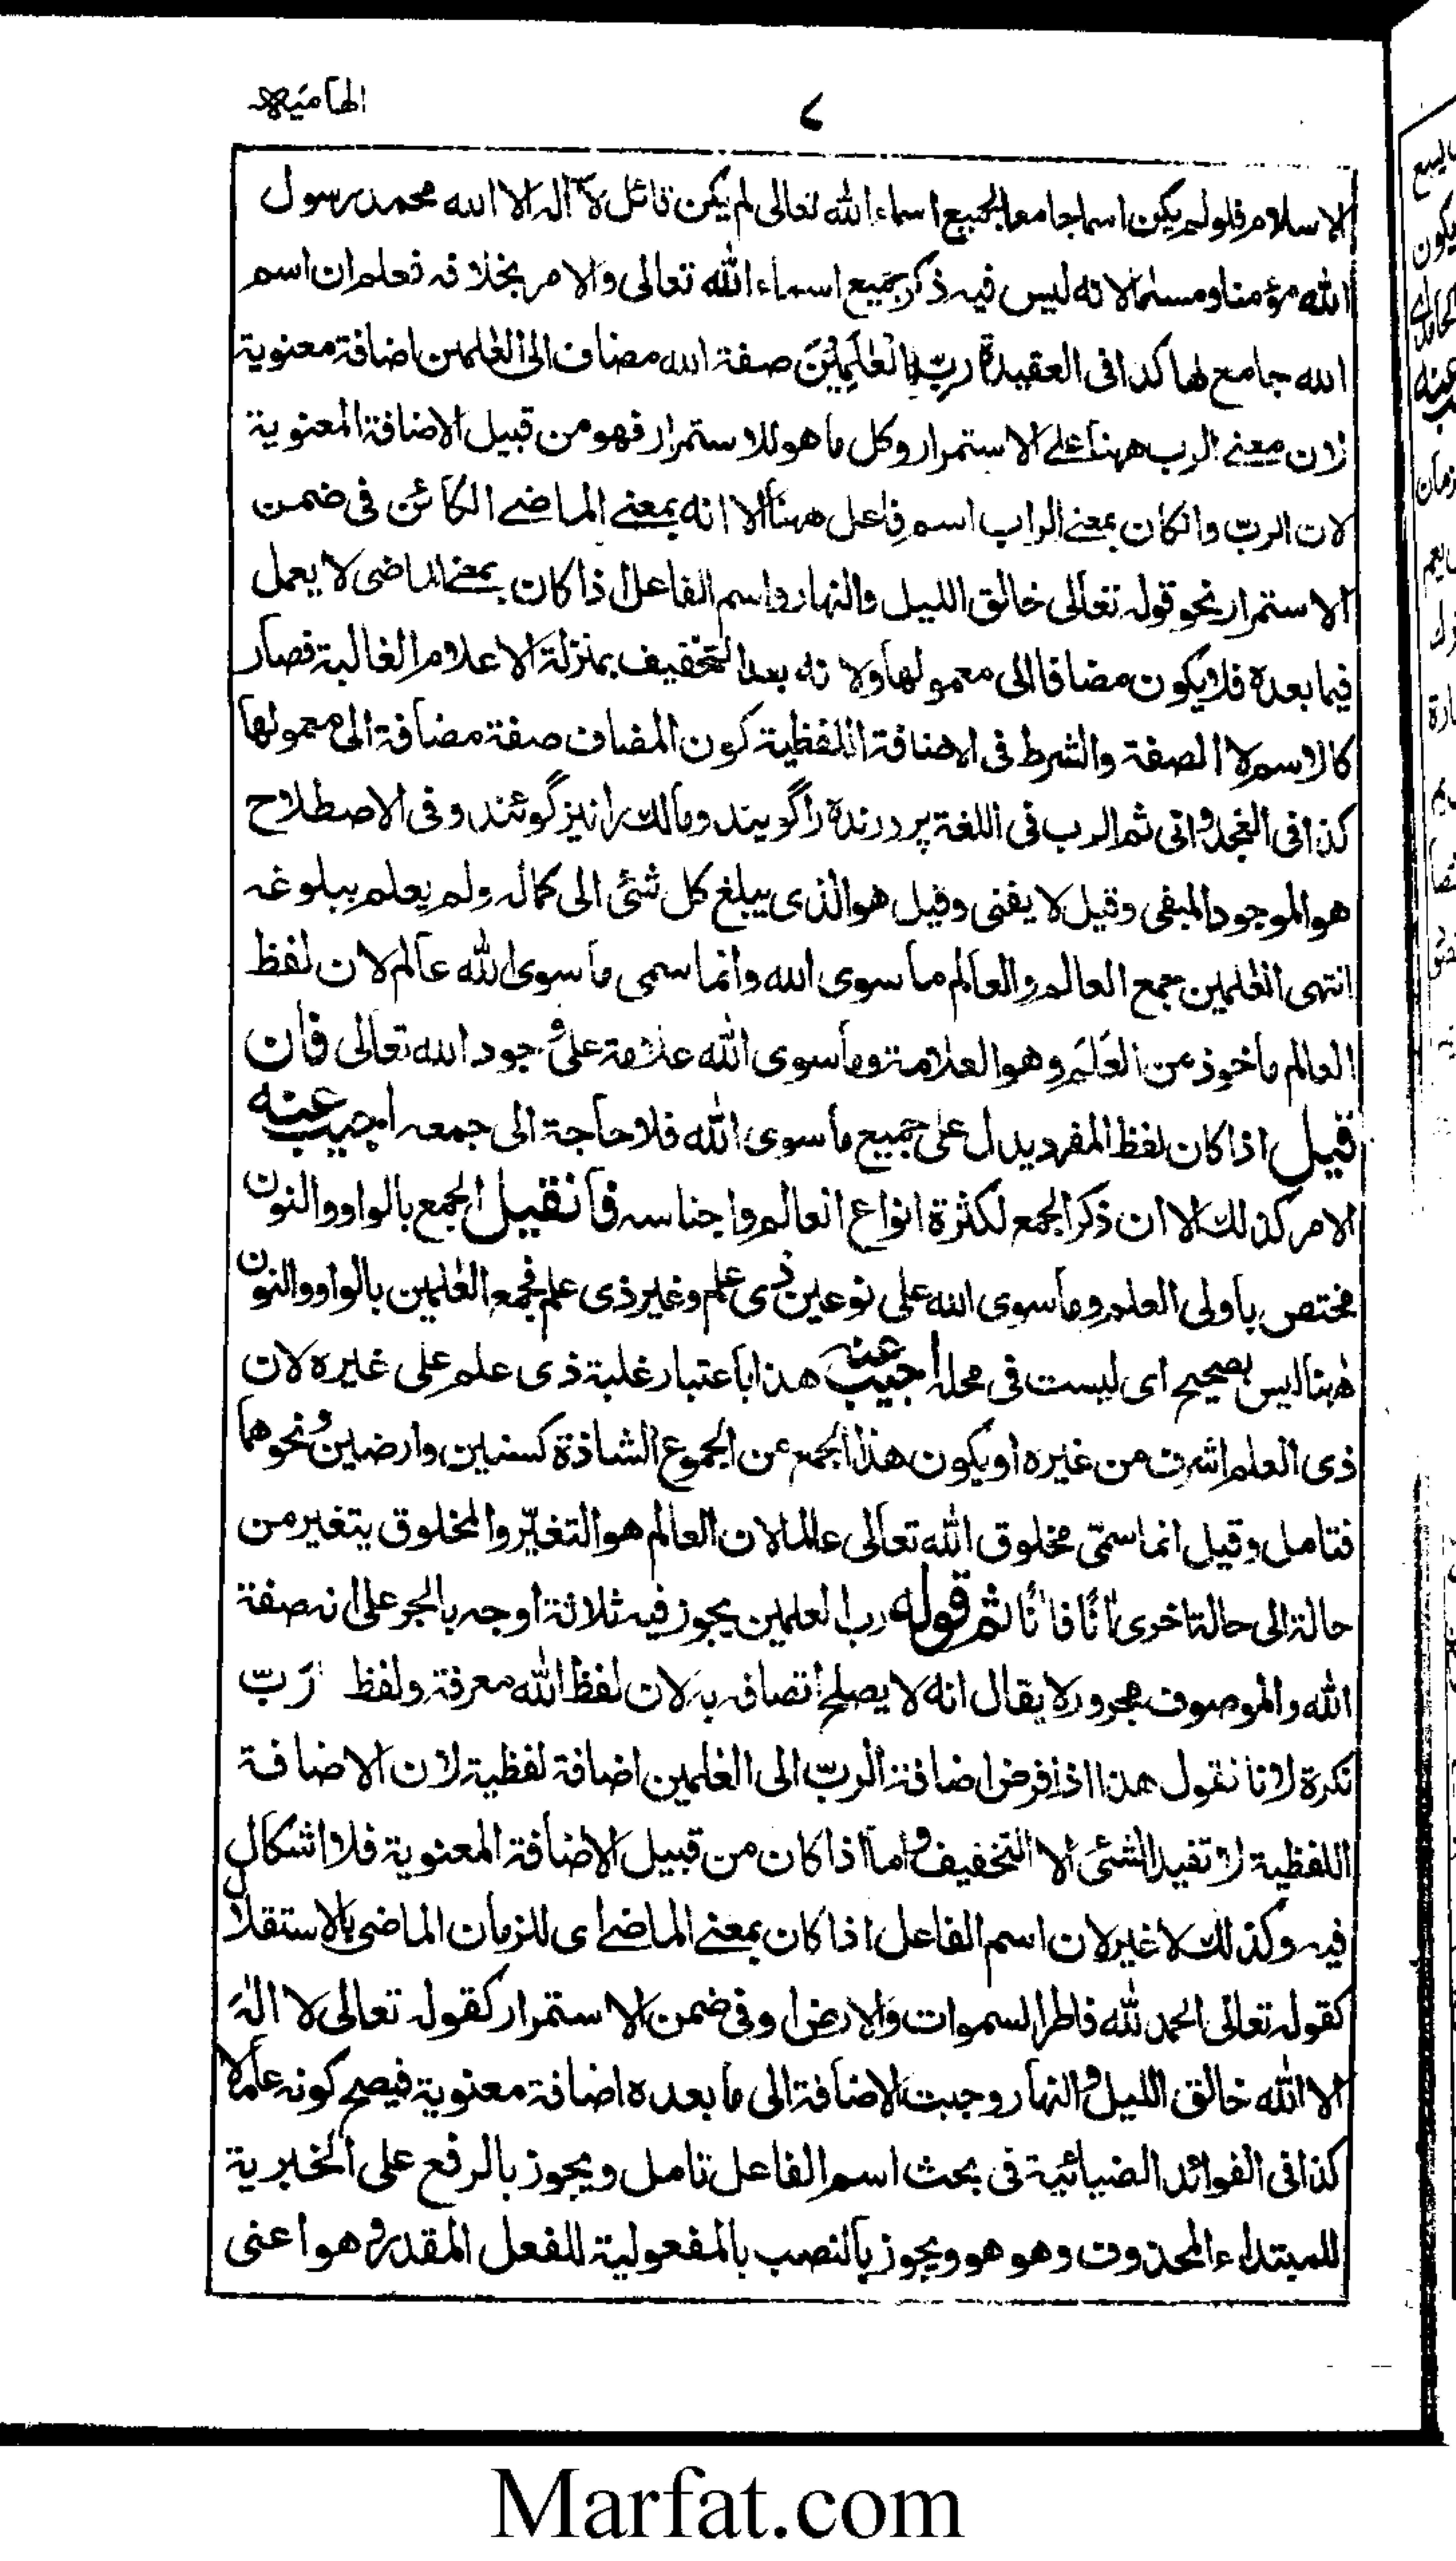 الهامیه
٧
الاسلام فلولم يكن اسما جامعا لجميع اسماء الله تعالى لم يكن قائل لا اله الا الله محمد رسول
الله مؤمنا ومسلما لانه ليس فيه ذكر جميع اسماء الله تعالى والامر بخلافه فعلم ان اسم
الله جامع لها كذا فى العقيدة رَبِّ الْعٰلَمِيْنَ صفة الله مضاف الى العٰلمين اضافة معنوية
لان معنے الرب ههنا علے الاستمرار وكل ما هو للاستمرار فهو من قبيل الاضافة المعنوية
لان الربّ وان كان بمعنے الراب اسم فاعل ههنا الا انه بمعنے الماضے الكائن فى ضمن
الاستمرار نحو قوله تعالى خالق الليل والنهار واسم الفاعل اذا كان بمعنے الماضى لا يعمل
فيما بعده فلا يكون مضافا الى معمولها ولانه بعد التخفيف بمنزلة الاعلام الغالبة فصار
كالاسم لا الصفة والشرط فى الاضافة اللفظية كون المضاف صفة مضافة الى معمولها
كذا فى الغجدوانى ثم الرب فى اللغة پرورنده را گويند ومالك را نيز گوئند وفى الاصطلاح
هو الموجود المبقى وقيل لا يفنى وقيل هو الذى يبلغ كل شئ الى كماله ولم يعلم ببلوغه
انتهى العٰلمين جمع العالم والعالم ما سوى الله وانما سمى ما سوى الله عالم لان لفظ
العالم ماخوذ من العَلَم وهو العلامة وما سوى الله علامة على وجود الله تعالى فان
قيل اذا كان لفظ المفرد يدل على جميع ما سوى الله فلا حاجة الى جمعه اجيب عنه
الامر كذلك الا ان ذكر الجمع لكثرة انواع العالم واجناسه فان قيل الجمع بالواو والنون
مختص باولى العلم وما سوى الله على نوعين ذى علم وغير ذى علم فجمع العٰلمين بالواو والنون
ههنا ليس بصحيح اى ليست فى محله اجيب عنه هذا باعتبار غلبة ذى علم على غيره لان
ذى العلم اشرف من غيره او يكون هذا الجمع من الجموع الشاذة كسنين وارضين ونحوهما
فتامل وقيل انما سمّى مخلوق الله تعالى عالما لان العالم هو التغيّر والمخلوق يتغير من
حالة الى حالة اخرى اٰنًا فاٰنًا ثم قوله رب العلمين يجوز فيه ثلاثة اوجه بالجر على انه صفة
الله والموصوف مجرور لا يقال انه لا يصلح اتصافه به لان لفظ الله معرفة ولفظ رَبّ
نكرة لانا نقول هذا اذا فرض اضافة الربّ الى العٰلمين اضافة لفظية لان الاضافة
اللفظية لا تفيد الشئ الا التخفيف واما اذا كان من قبيل الاضافة المعنوية فلا اشكال
فيه وكذلك لا غير لان اسم الفاعل اذا كان بمعنے الماضے اى للزمان الماضى بالاستقلال
كقوله تعالى الحمد لله فاطر السموات والارض او فى ضمن الاستمرار كقوله تعالى لا الٰهَ
الا الله خالق الليل والنهار وجبت الاضافة الى ما بعده اضافة معنوية فيصح كونه علما
كذا فى الفوائد الضيائية فى بحث اسم الفاعل تامل ويجوز بالرفع على الخبرية
للمبتداء المحذوف وهو هو ويجوز بالنصب بالمفعولية للفعل المقدر وهو اعنى
Marfat.com